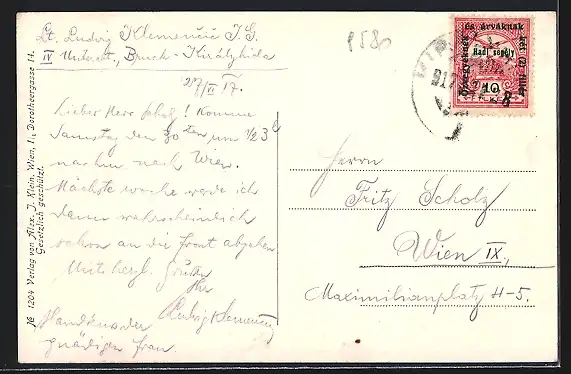 Lt. Ludwig Klemenčič I.G.
IV Unterabt., Bruck-Királyhida
27/VI 17.
Lieber Herr Scholz! Komme
Samstag den 30ten um 1/2 3h
nachm nach Wien.
Nächste woche werde ich
dann wahrscheinlich
schon an die Front abgehen
Mit herzl. Grüßen
Ihr
Ludwig Klemenčič
Handkuss der
gnädigen Frau.
№ 1204 Verlag von Alex. J. Klein, Wien, I., Dorotheergasse 14.
Gesetzlich geschützt.
1580
özvegyeknek és árváknak
Hadi segély
két (2) fillér
10
Herrn
Fritz Scholz
Wien IX.,
Maximilianplatz 4-5.